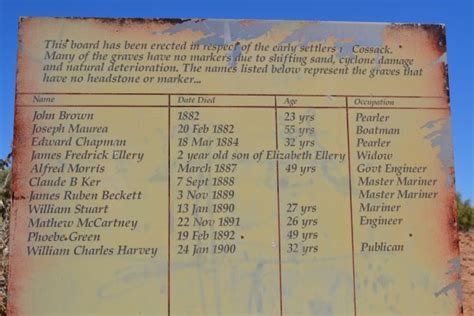 This board has been erected in respect of the early settlers Cossack.
Many of the graves have no markers due to shifting sand, cyclone damage
and natural deterioration. The names listed below represent the graves that
have no headstone or marker...
Name Date Died Age Occupation
John Brown 1882 23 yrs Pearler
Joseph Maurea 20 Feb 1882 55 yrs Boatman
Edward Chapman 18 Mar 1884 32 yrs Pearler
James Fredrick Ellery 2 year old son of Elizabeth Ellery Widow
Alfred Morris March 1887 49 yrs Govt Engineer
Claude B Ker 7 Sept 1888 Master Mariner
James Ruben Beckett 3 Nov 1889 Master Mariner
William Stuart 13 Jan 1890 27 yrs Mariner
Mathew McCartney 22 Nov 1891 26 yrs Engineer
Phoebe Green 19 Feb 1892 49 yrs
William Charles Harvey 24 Jan 1900 32 yrs Publican